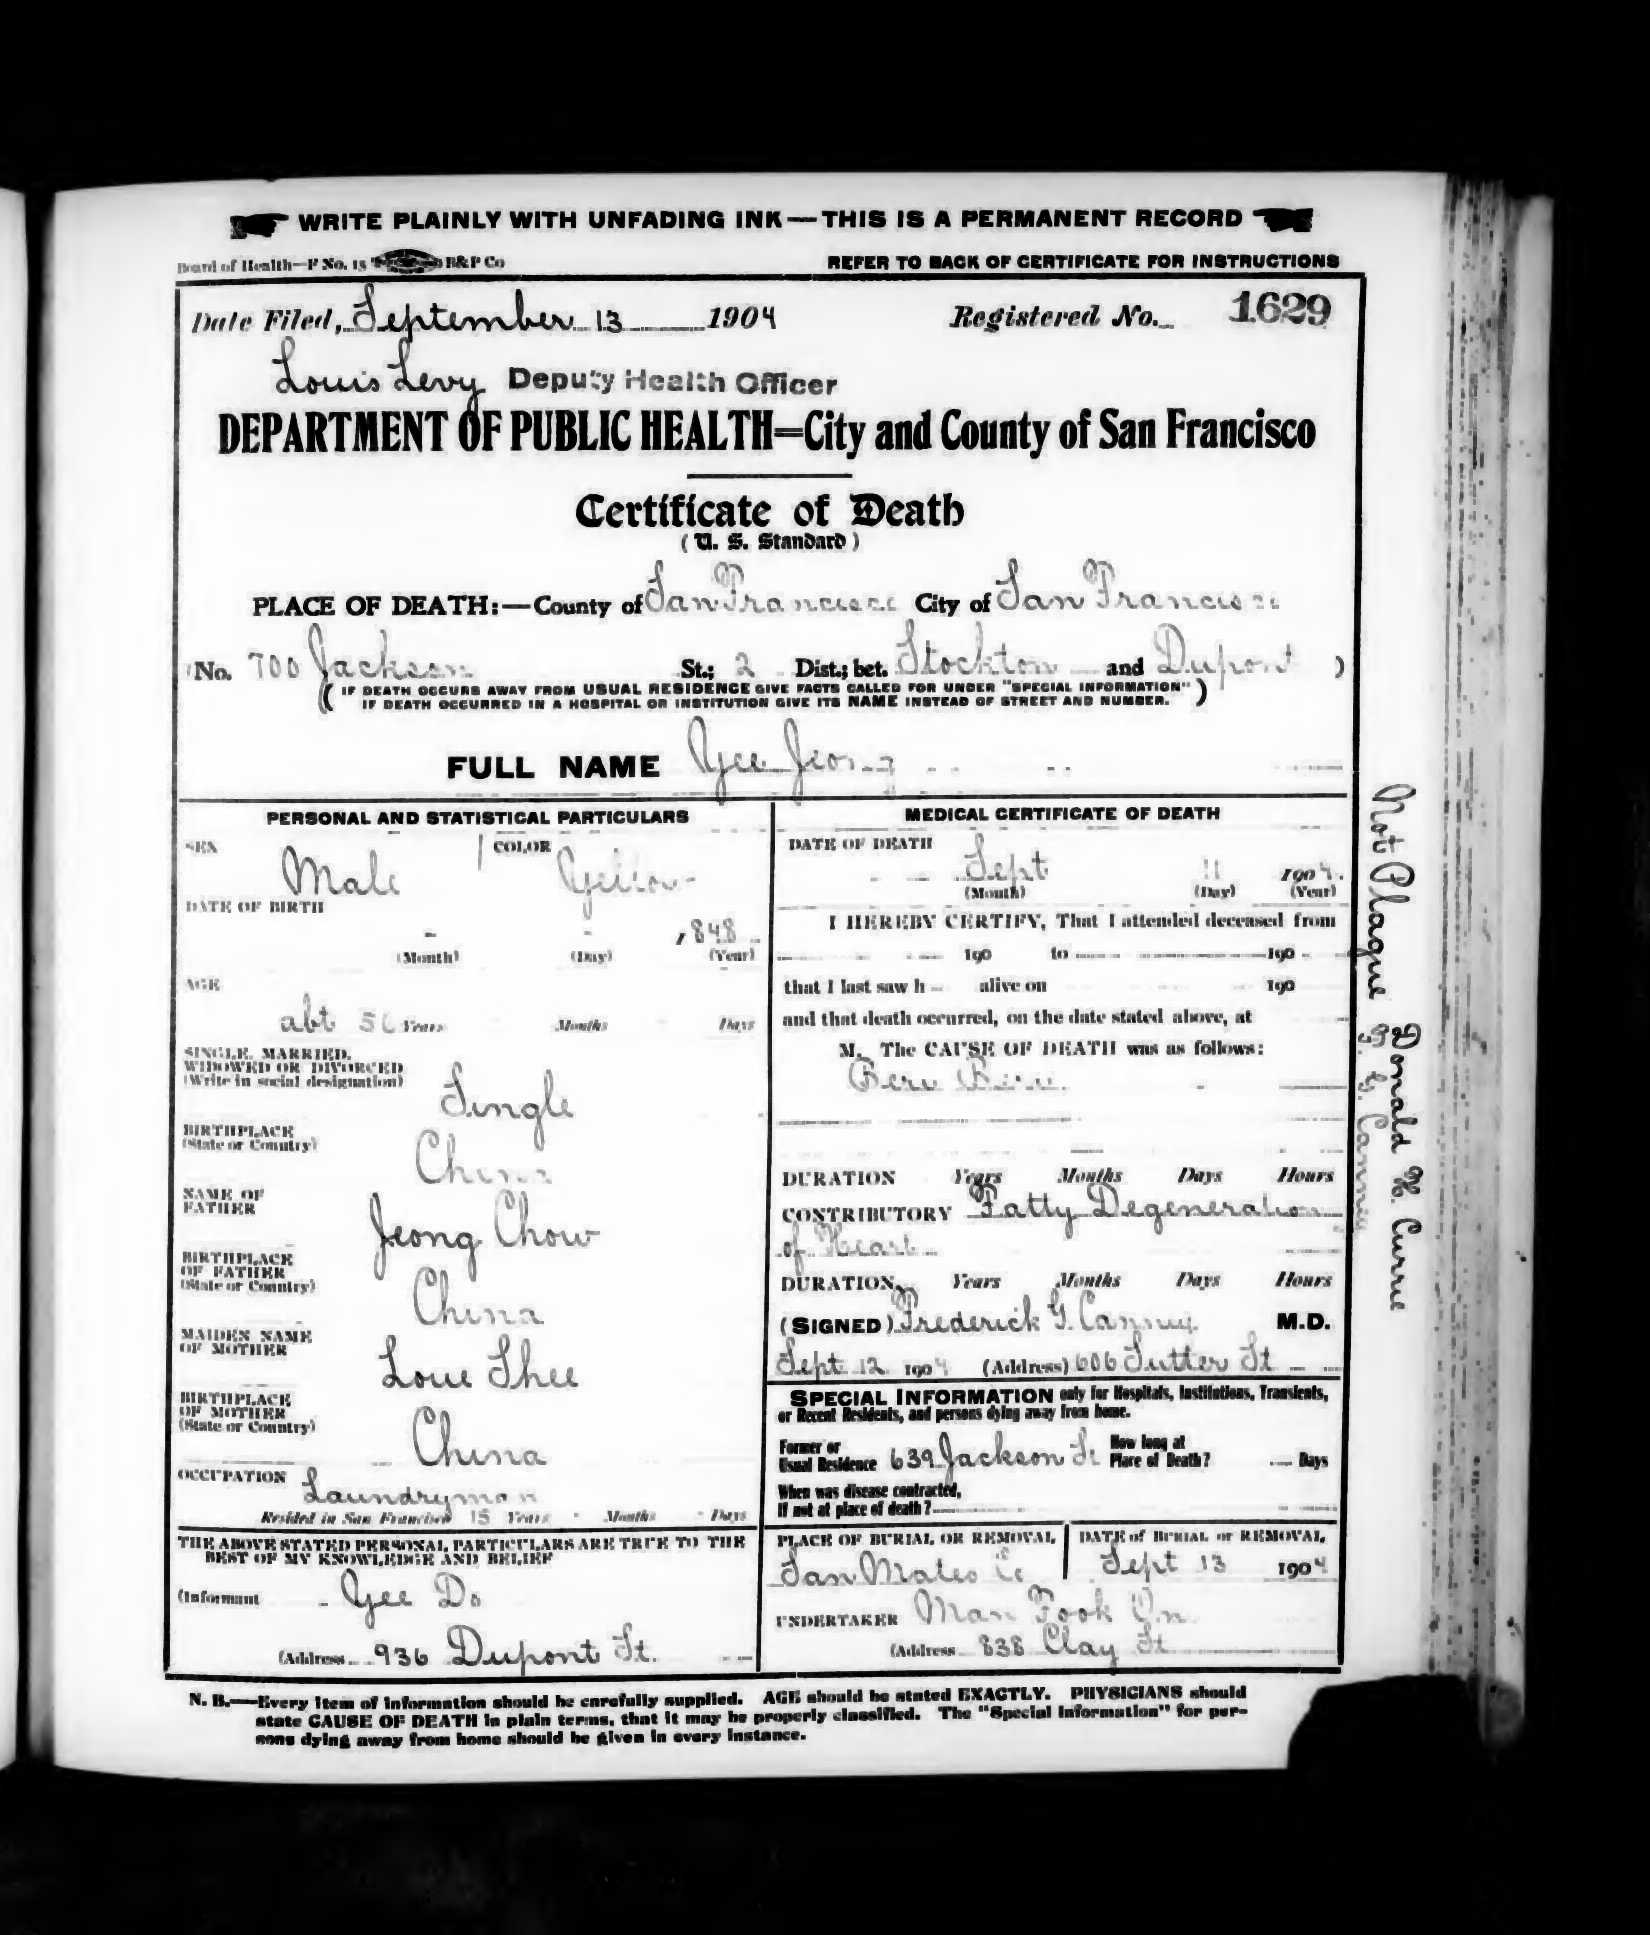 WRITE PLAINLY WITH UNFADING INK—THIS IS A PERMANENT RECORD
Board of Health—F No. 15 B&P Co
REFER TO BACK OF CERTIFICATE FOR INSTRUCTIONS
Date Filed, September 13 1904
Registered No. 1629
Louis Levy Deputy Health Officer
DEPARTMENT OF PUBLIC HEALTH=City and County of San Francisco
Certificate of Death
(U. S. Standard)
PLACE OF DEATH:—County of San Francisco City of San Francisco
(No. 700 Jackson St.; 2 Dist.; bet. Stockton and Dupont )
( IF DEATH OCCURS AWAY FROM USUAL RESIDENCE GIVE FACTS CALLED FOR UNDER "SPECIAL INFORMATION"
IF DEATH OCCURRED IN A HOSPITAL OR INSTITUTION GIVE ITS NAME INSTEAD OF STREET AND NUMBER. )
FULL NAME Yee Jeong
PERSONAL AND STATISTICAL PARTICULARS
SEX Male
COLOR Yellow
DATE OF BIRTH
1848
(Month) (Day) (Year)
AGE
abt Years Months Days
SINGLE, MARRIED,
WIDOWED OR DIVORCED
(Write in social designation)
Single
BIRTHPLACE
(State or Country)
China
NAME OF
FATHER
Jeong Chow
BIRTHPLACE
OF FATHER
(State or Country)
China
MAIDEN NAME
OF MOTHER
Loue Shee
BIRTHPLACE
OF MOTHER
(State or Country)
China
OCCUPATION Laundryman
Resided in San Francisco 15 Years Months Days
THE ABOVE STATED PERSONAL PARTICULARS ARE TRUE TO THE
BEST OF MY KNOWLEDGE AND BELIEF
(Informant Yee Do
(Address 936 Dupont St.
MEDICAL CERTIFICATE OF DEATH
DATE OF DEATH
Sept 11 1904.
(Month) (Day) (Year)
I HEREBY CERTIFY, That I attended deceased from
190 to 190
that I last saw h alive on 190
and that death occurred, on the date stated above, at
M. The CAUSE OF DEATH was as follows:
Beri Beri.
DURATION Years Months Days Hours
CONTRIBUTORY Fatty Degeneration
of Heart
DURATION Years Months Days Hours
(SIGNED) Frederick G. Canney M.D.
Sept 12 1904 (Address) 606 Sutter St
SPECIAL INFORMATION only for Hospitals, Institutions, Transients,
or Recent Residents, and persons dying away from home.
Former or
Usual Residence 639 Jackson St
How long at
Place of Death? Days
When was disease contracted,
If not at place of death?
PLACE OF BURIAL OR REMOVAL
San Mateo Co
DATE of BURIAL or REMOVAL
Sept 13 1904
UNDERTAKER Man Fook On
(Address 838 Clay St
N. B.—Every item of information should be carefully supplied. AGE should be stated EXACTLY. PHYSICIANS should
state CAUSE OF DEATH in plain terms, that it may be properly classified. The "Special Information" for per-
sons dying away from home should be given in every instance.
Not Plague
Donald H. Currie
F. G. Canney